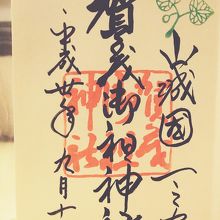 山城國一之宮
賀茂御祖神社
平成廿年九月十